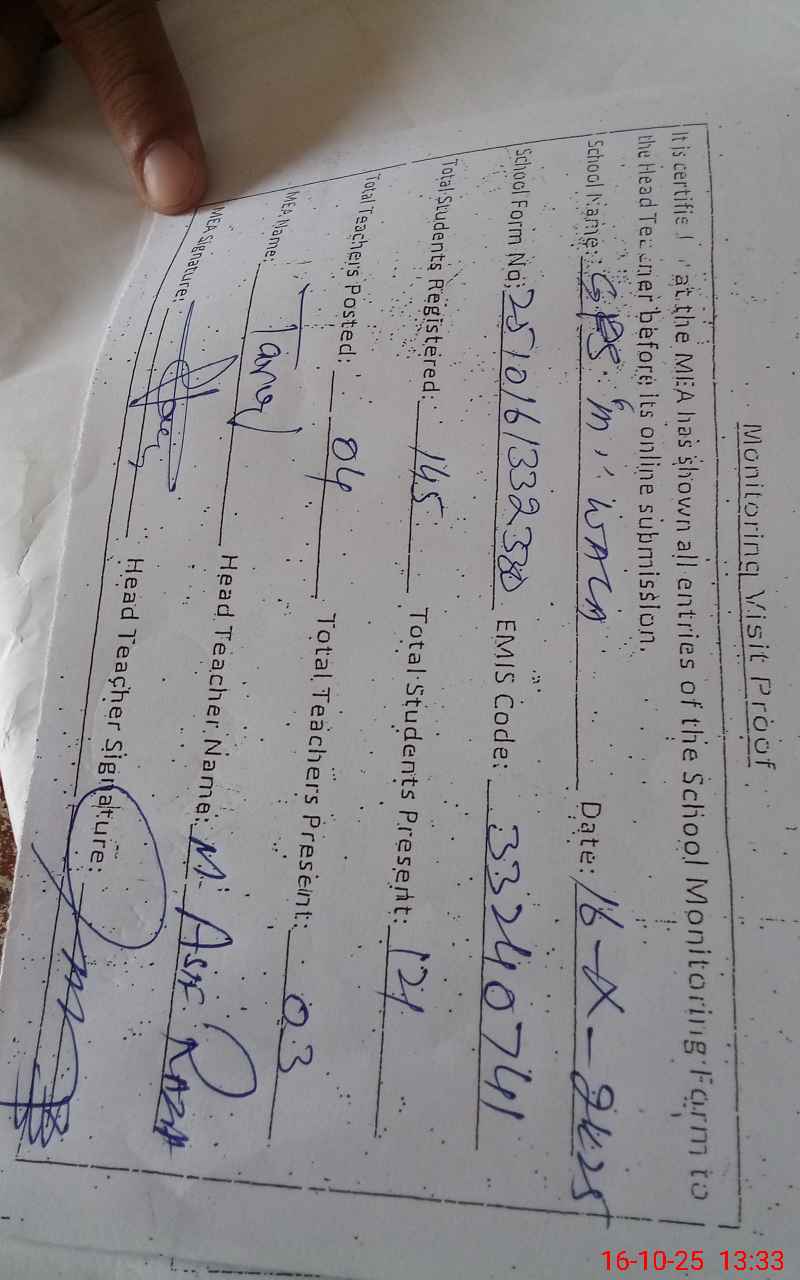 Monitoring Visit Proof
It is certified that the MEA has shown all entries of the School Monitoring Form to
the Head Teacher before its online submission.
School Name: GPS WALA Date: 16-X-2k25
School Form No: EMIS Code: 33240741
Total Students Registered: 145 Total Students Present: 121
Total Teachers Posted: 04 Total Teachers Present: 03
MEA Name: Tariq Head Teacher Name: M. Asif Raza
MEA Signature: Head Teacher Signature:
16-10-25 13:33